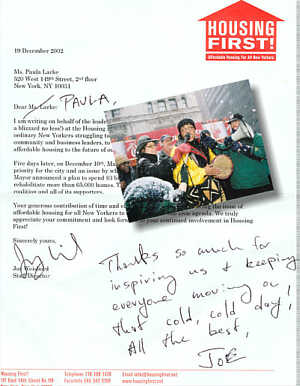 HOUSING
FIRST!
Affordable Housing For All New Yorkers
19 December 2002
Ms. Paula Larke
New York, NY
Dear Ms. Larke:
PAULA,
I am writing on behalf of the leade
a blizzard no less!) at the Housing
ordinary New Yorkers struggling to
community and business leaders, to
affordable housing to the future of ou
Five days later, on December 10th, Ma
priority for the city and an issue by wh
Mayor announced a plan to spend $3 b
rehabilitate more than 65,000 homes. T
coalition and all of its supporters.
Your generous contribution of time and
affordable housing for all New Yorkers to
appreciate your commitment and look for
First!
Sincerely yours,
Staff Director
Thanks so much for
inspiring us & keeping
everyone moving on
that cold, cold day!
All the best,
JOE
Housing First!
Telephone
Facsimile
www.housingfirst.net